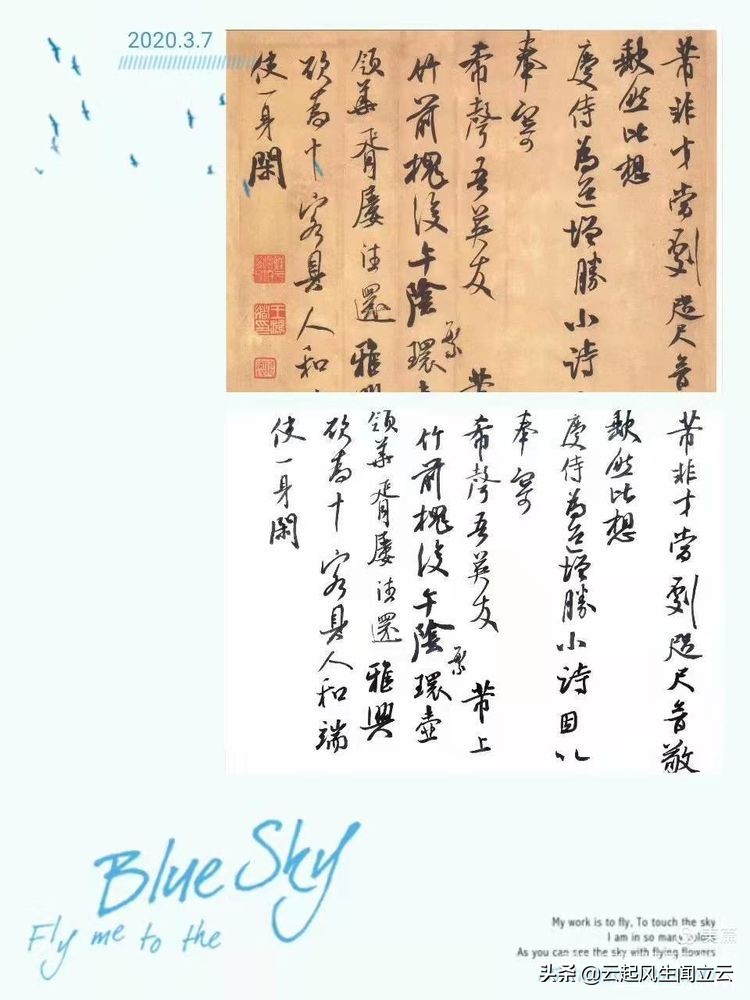 2020.3.7
芾非才當劇咫尺音
缺然比想
慶侍為道增勝小詩
奉寄
希聲吾英友 芾
繁
竹前槐後午陰環
領華胥屢往還雅
欲為十客具人和
使一身閑
芾非才當劇咫尺音敬
缺然比想
慶侍為道增勝小詩因以
奉寄
希聲吾英友 芾上
繁
竹前槐後午陰環壺
領華胥屢往還雅興
欲為十客具人和端
使一身閑
Blue Sky
Fly me to the
My work is to fly, To touch the sky
I am in so many
As you can see the sky with flying flowers
美篇
头条 @云起风生闻立云